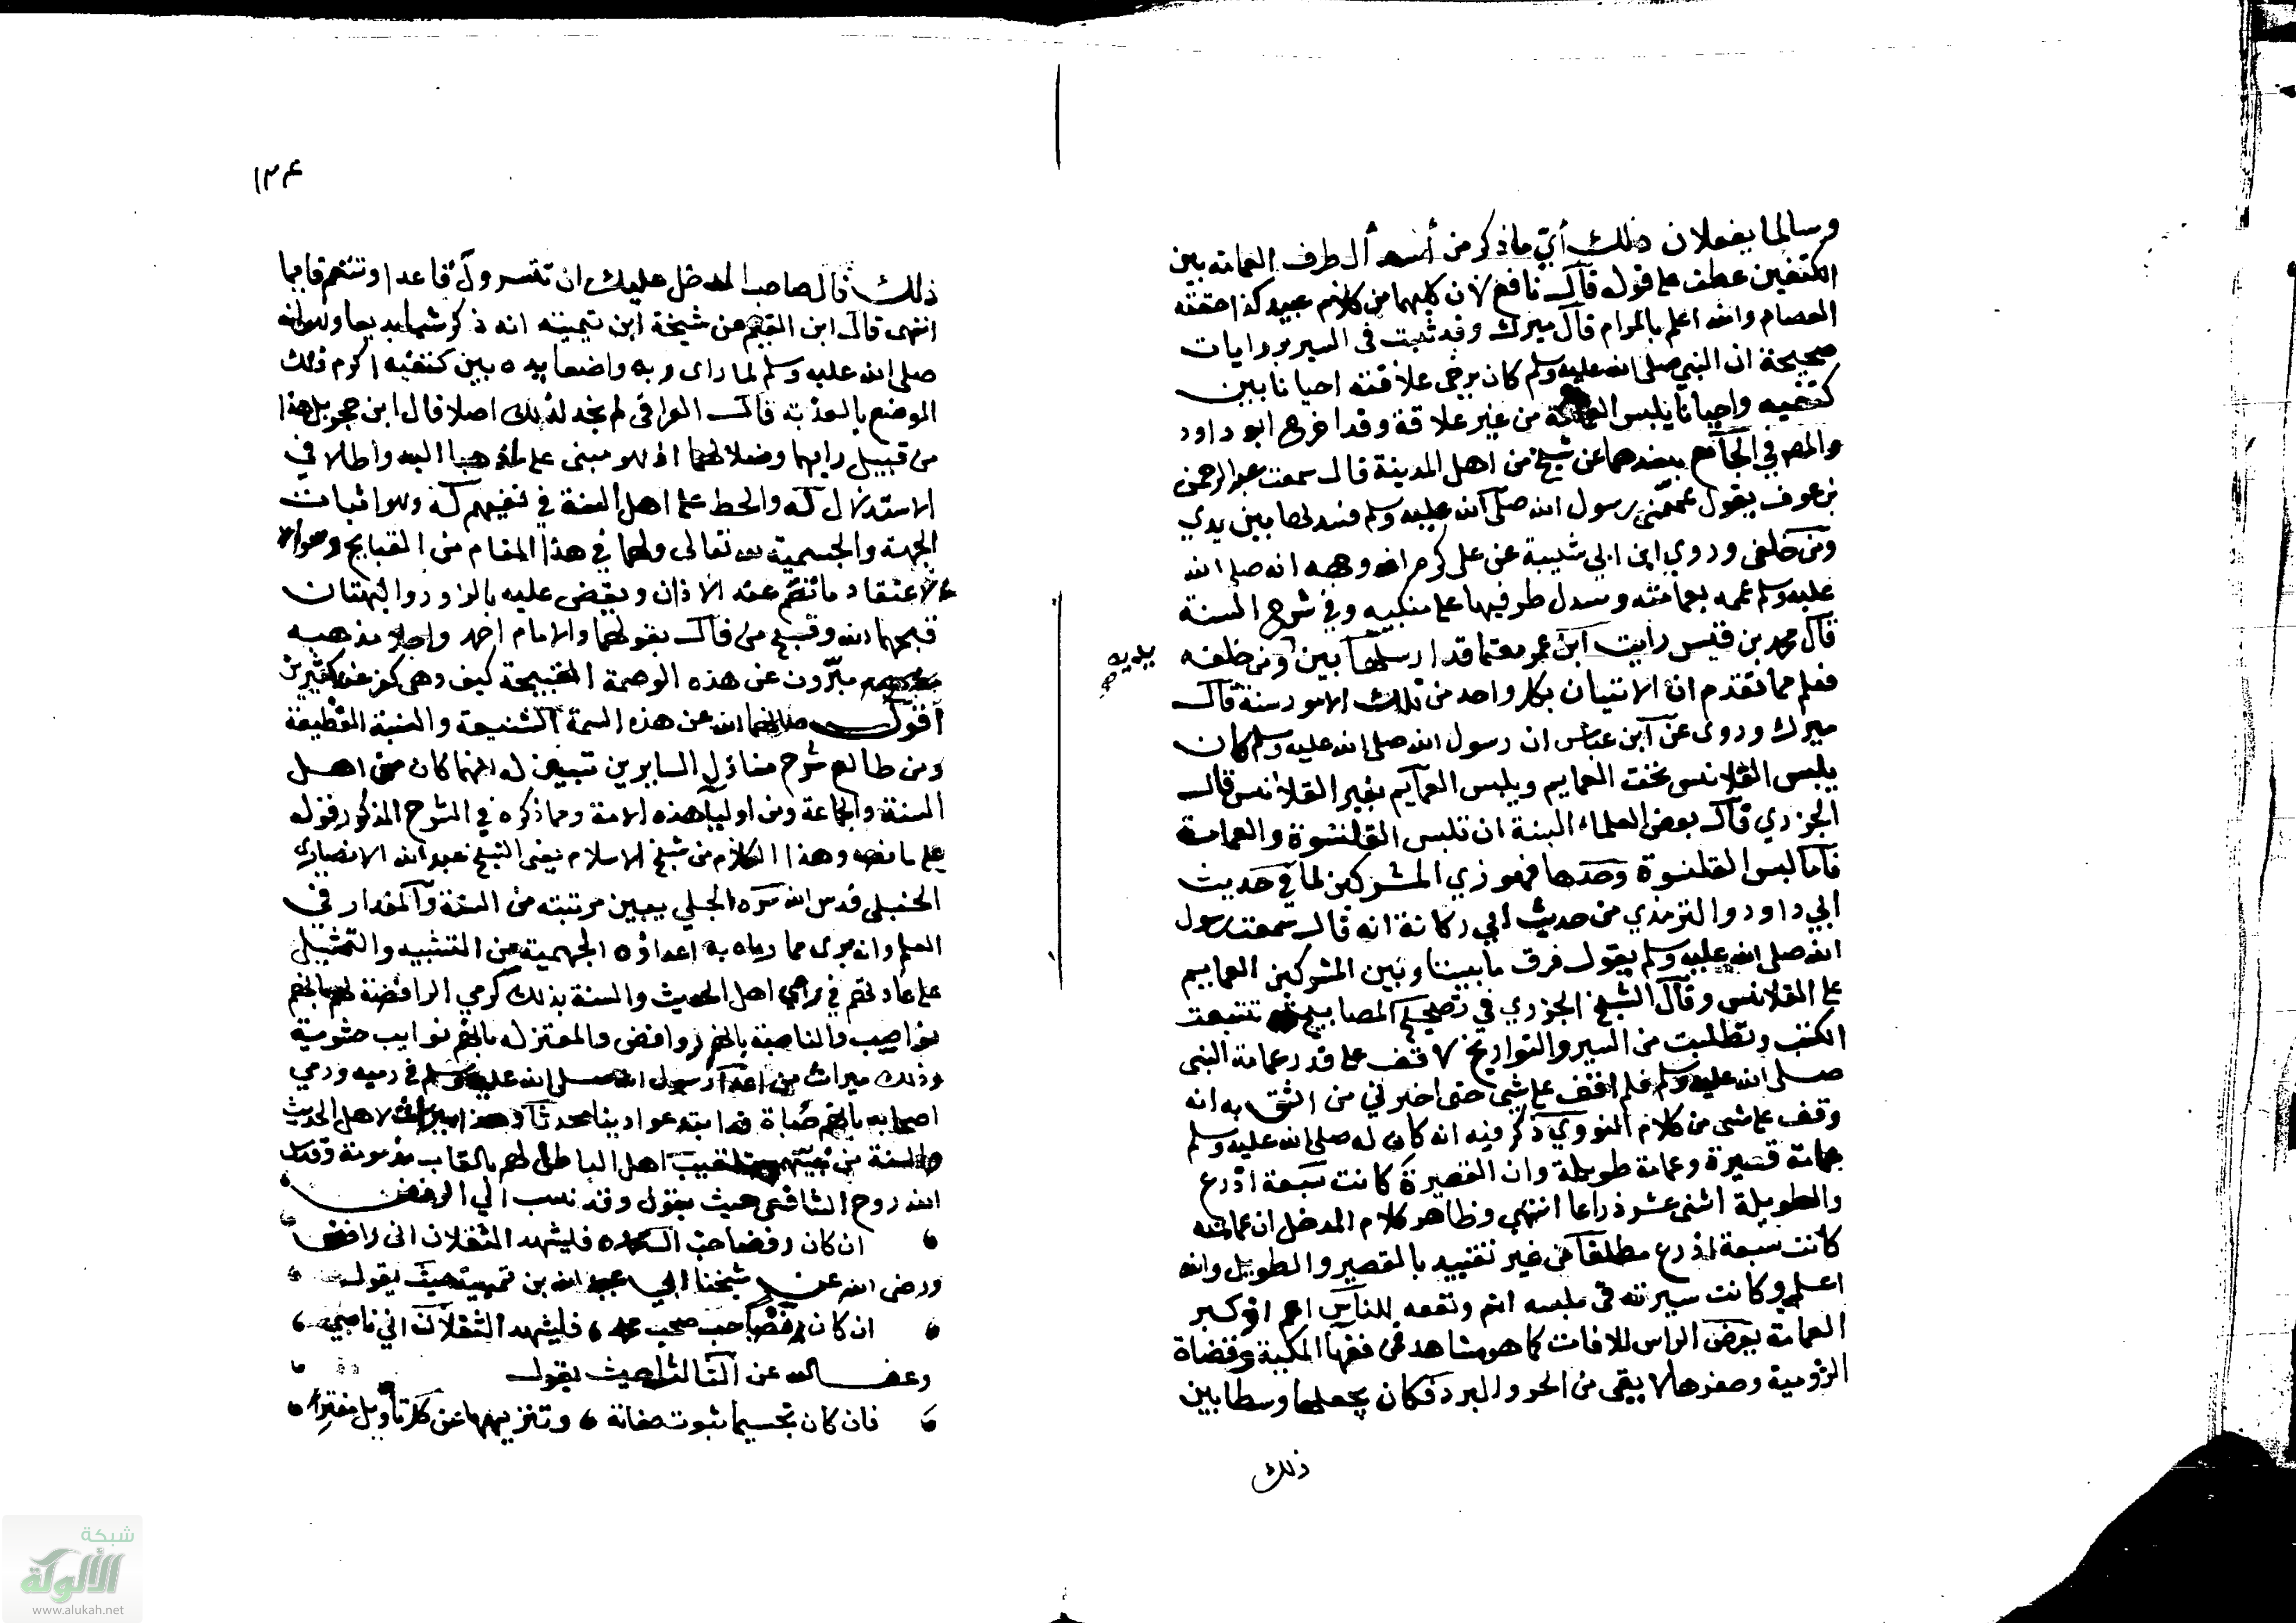 وسالما يفعلان ذلك أي ما ذكر من أسدال طرف العمامة بين
الكتفين عطف على قوله قال نافع لان كليهما من كلام عبيد كذا حققه
العصام والله اعلم بالمرام قال ميرك وقد ثبت في السير بروايات
صحيحة ان النبي صلى الله عليه وسلم كان يرخي علاقته احيانا بين
كتفيه واحيانا يلبس العمامة من غير علاقة وقد اخرج ابو داود
والمص في الجامع بسندهما عن شيخ من اهل المدينة قال سمعت عبد الرحمن
بن عوف يقول عممني رسول الله صلى الله عليه وسلم فسدلها بين يدي
ومن خلفي وروي ابن ابي شيبة عن علي كرم الله وجهه انه صلى الله
عليه وسلم عممه بعمامته وسدل طرفيها على منكبيه وفي شرح السنة
قال محمد بن قيس رايت ابن عمر معتما قد ارسلها بين ومن خلفه
يديه صح
فعلم مما تقدم ان الاتيان بكل واحد من تلك الامور سنة قال
ميرك وروى عن ابن عباس ان رسول الله صلى الله عليه وسلم كان
يلبس القلانس تحت العمايم ويلبس العمايم بغير القلانس قال
الجزري قال بعض العلماء السنة ان تلبس القلنسوة والعمامة
فاما لبس القلنسوة وحدها فهو زي المشركين لما في حديث
ابي داود والترمذي من حديث ابي ركانة انه قال سمعت رسول
الله صلى الله عليه وسلم يقول فرق ما بيننا وبين المشركين العمايم
على القلانس وقال الشيخ الجزري في تصحيح المصابيح تتبعت
الكتب وتطلبت من السير والتواريخ لاقف على قدر عمامة النبي
صلى الله عليه وسلم فلم اقف على شي حتى اخبرني من اثق به انه
وقف على شي من كلام النووي ذكر فيه انه كان له صلى الله عليه وسلم
عمامة قصيرة وعمامة طويلة وان القصيرة كانت سبعة اذرع
والطويلة اثنى عشر ذراعا انتهى وظاهر كلام المدخل ان عمامته
كانت سبعة اذرع مطلقا من غير تقييد بالقصير والطويل والله
اعلم وكانت سيرته في ملبسه اتم ونفعه للناس اعم اذ كبر
العمامة يعرض الراس للافات كما هو مشاهد في فقهاء المكية وقضاة
الرومية وصغرها لا يقى من الحر والبرد فكان يجعلها وسطا بين
ذلك
١٣٤
ذلك قال صاحب المدخل عليك ان تتسرول قاعدا وتتعمم قايما
انتهى قال ابن القيم عن شيخه ابن تيمية انه ذكر شيا بديعا وهو انه
صلى الله عليه وسلم لما راى ربه واضعا يده بين كتفيه اكرم ذلك
الموضع بالعذبة قال العراقي لم نجد لذلك اصلا قال ابن حجر بل هذا
من قبيل رايهما وضلالهما اذ هو مبنى على ما ذهبا اليه واطالا في
الاستدلال له والحط على اهل السنة في نفيهم له وهو اثبات
الجهة والجسمية لله تعالى ولهما في هذا المقام من القبايح وسوء
الاعتقاد ما تصم عنه الاذان ويقضى عليه بالزور والبهتان
قبحهما الله وقبح من قال بقولهما والامام احمد واجلاء مذهبه
مبرؤن عن هذه الوصمة القبيحة كيف وهي كفر عند كثيرين
اقول صانهما الله عن هذه السمة الشنيعة والنسبة الفظيعة
ومن طالع شرح منازل السايرين تبين له انهما كان من اهل
السنة والجماعة ومن اولياء هذه الامة ومما ذكره في الشرح المذكور قوله
على ما نصه وهذا الكلام من شيخ الاسلام يعني الشيخ عبد الله الانصاري
الحنبلي قدس الله سره الجلي يبين مرتبته من السنة والمقدار في
العلم وانه برى مما رماه به اعداؤه الجهمية من التشبيه والتمثيل
على عادتهم في رمي اهل الحديث والسنة بذلك كرمي الرافضة لهم بانهم
نواصب والناصبة بانهم روافض والمعتزلة بانهم نوايب حشوية
وذلك ميراث من اعداء رسول الله صلى الله عليه وسلم في رميه ورمي
اصحابه بانهم صباة قد ابتدعوا دينا محدثا وهذا ميراث لاهل الحديث
والسنة من نبيهم بتلقيب اهل الباطل لهم بالقاب مذمومة وقدس
الله روح الشافعي حيث يقول وقد نسب الي الرفض
ان كان رفضا حب ال محمد فليشهد الثقلان اني رافضي
ورضى الله عن شيخنا ابي عبد الله بن تيمية حيث يقول
ان كان رفضا حب صحب محمد فليشهد الثقلان اني ناصبي
وعفا الله عن الثالث حيث يقول
فان كان تجسيما ثبوت صفاته وتنزيهها عن كل تاويل مفتر
شبكة
الألوكة
www.alukah.net